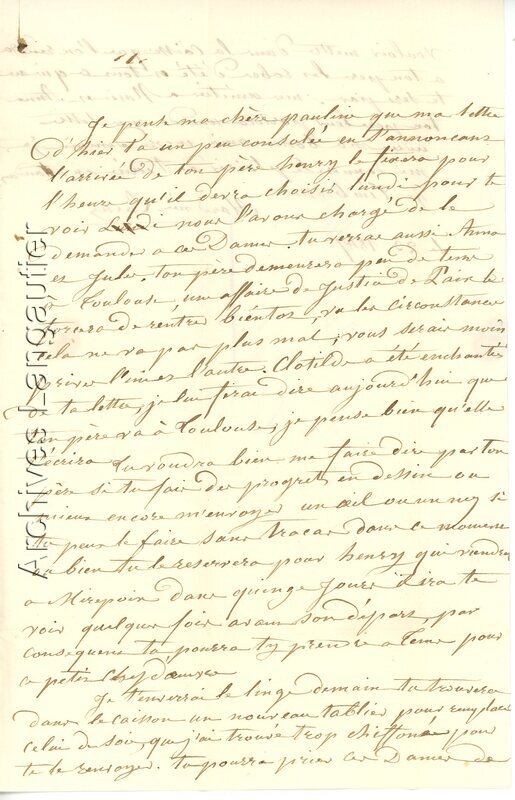 Je pense ma chère pauline que ma lettre
d'hier t'a un peu consolée en t'annoncant
l'arrivée de ton père henry le fixera pour
l'heure qu'il devra choisir lundi pour te
voir nous l'avons chargé de le
demander a ces Dames. tu verras aussi Anna
et Jules. ton père demeurera peu de tems
a Toulouse, une affaire de Justice de Paix le
forcera de rentrer bientot, vu les circonstances
cela ne va pas plus mal, vous seriez moins
l'une et l'autre. Clotilde a été enchantée
de ta lettre, je lui ferai dire aujourd'hui que
ton père va à Toulouse, je pense bien qu'elle
ecrira Tu voudra bien me faire dire par ton
père si tu fais des progrets en dessin ou
mieux encore m'envoyer un œil ou un nez si
tu peux le faire sans tracas dans ce moment
ou bien tu le reservera pour henry qui viendra
a Mirepoix dans quinze jours il ira te
voir quelque fois avant son départ, par
consequent tu pourra t'y prendre a tems pour
ce petit chef d'œuvre
Je t'enverrai le linge demain tu trouvera
dans le caisson un nouveau tablier pour remplacer
celui de soie, que j'ai trouvé trop chiffoné pour
te le renvoyer. tu pourra prier ces Dames de
Archives Langautier